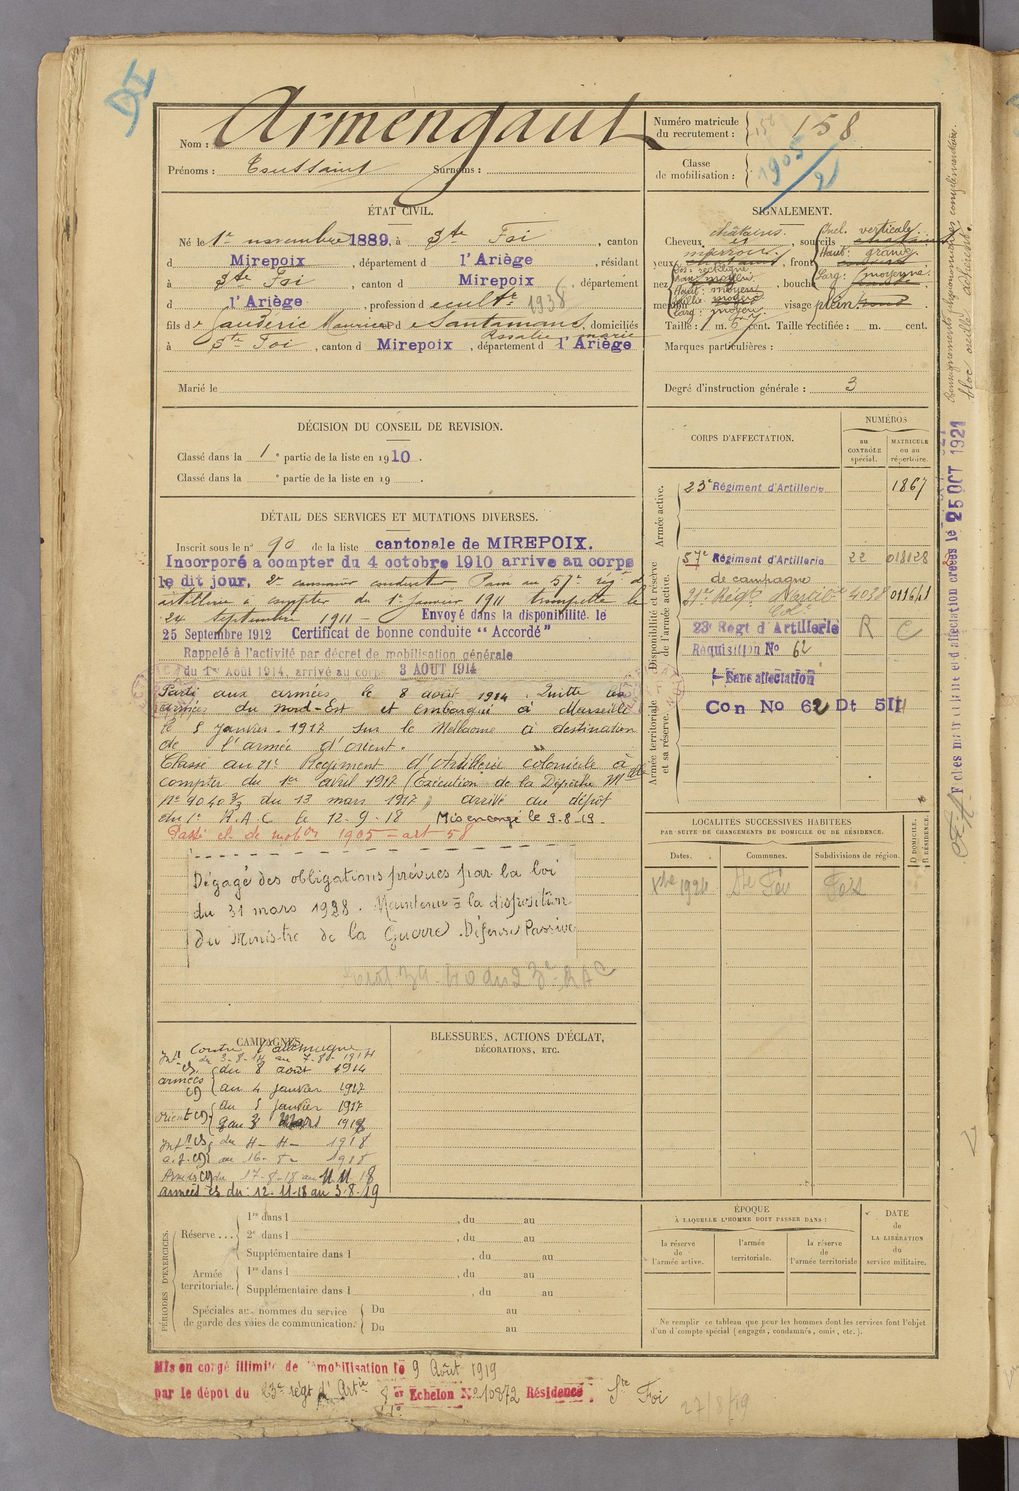 DI
Nom : Armengaut
Prénoms : Toussaint Surnoms :
Numéro matricule du recrutement : 158
Classe de mobilisation : 1905/21
ÉTAT CIVIL.
Né le 1er novembre 1889, à Ste Foi, canton
d Mirepoix, département d l'Ariège, résidant
à Ste Foi, canton d Mirepoix, département
d l'Ariège, profession de cultr 1938
fils de Gauderic Maurice et de Santamans, domiciliés
Rosalie marie
à Ste Foi, canton d Mirepoix, département d l'Ariège
Marié le
SIGNALEMENT.
Cheveux châtains, sourcils
yeux marrons, front Incl. verticale
Haut: grande
Larg: moyenne
nez Dos: rectiligne, bouche
Haut: moyen
Larg: moyen
menton, visage plein
Taille : 1 m. 67 cent. Taille rectifiée : m. cent.
Marques particulières :
Degré d'instruction générale : 3
Renseignements physionomiques complémentaires.
DÉCISION DU CONSEIL DE REVISION.
Classé dans la 1e partie de la liste en 1910.
Classé dans la e partie de la liste en 19 .
DÉTAIL DES SERVICES ET MUTATIONS DIVERSES.
Inscrit sous le n° 90 de la liste cantonale de MIREPOIX.
Incorporé a compter du 4 octobre 1910 arrive au corps
le dit jour, 2e canonnier conducteur Passé au 57e régt d
artillerie à compter du 1er janvier 1911 trompette le
24 septembre 1911 – Envoyé dans la disponibilité le
25 Septembre 1912 Certificat de bonne conduite "Accordé"
Rappelé à l'activité par décret de mobilisation générale
du 1er Août 1914, arrivé au corps 3 AOUT 1914
Parti aux armées le 8 août 1914. Quitte les
armées du Nord-Est et embarqué à Marseille
le 5 janvier 1917 sur le Melbourne à destination
de l'armée d'orient.
Classé au 21e Régiment d'Artillerie coloniale à
compter du 1er avril 1917 (Exécution de la Dépêche Mlle
N° 9040 3/3 du 13 mars 1917) arrivé au dépôt
du 1er R.A.C le 12-9-18 Mis en congé le 9-8-19.
Passé cl. de mobon 1905 – art 58
Dégagé des obligations prévues par la loi
du 31 mars 1928. Maintenu à la disposition
du Ministre de la Guerre. Défense Passive
39-40 du 23e RAC
CORPS D'AFFECTATION.
NUMÉROS
AU CONTRÔLE spécial.
MATRICULE ou au répertoire.
Armée active.
23e Régiment d'Artillerie 1867
Disponibilité et réserve de l'armée active.
57e Régiment d'Artillerie 22 018128
de campagne
21e Régt d'Artie 4058 011641
Cole
23e Regt d'Artillerie R C
Réquisition No 62
Sans affectation
Armée territoriale et sa réserve.
Con No 62 Dt 511
Felles matricule et d'affectation créées le 25 OCT 1921
LOCALITÉS SUCCESSIVES HABITÉES
PAR SUITE DE CHANGEMENTS DE DOMICILE OU DE RÉSIDENCE.
Dates. Communes. Subdivisions de région. D DOMICILE. R RÉSIDENCE.
Xbre 1924 Ste Foi Foix
CAMPAGNES.
Contre l'Allemagne
Intr du 3-8-14 au 7-8-1914
armées cs du 8 août 1914
au 4 janvier 1917
Orient cs du 5 janvier 1917
au 3 Mars 1918
Intr cs du 4-4- 1918
au 16-8- 1918
Armées cs du 17-8-18 au 11 11 18
armées cs du : 12-11-18 au 3-8-19
BLESSURES, ACTIONS D'ÉCLAT,
DÉCORATIONS, ETC.
PÉRIODES D'EXERCICES.
Réserve ... 1re dans l , du au
2e dans l , du au
Supplémentaire dans l , du au
Armée territoriale. 1re dans l , du au
Supplémentaire dans l , du au
Spéciales aux hommes du service de garde des voies de communication. Du au
Du au
ÉPOQUE
À LAQUELLE L'HOMME DOIT PASSER DANS :
la réserve de l'armée active.
l'armée territoriale.
la réserve de l'armée territoriale
DATE de LA LIBÉRATION du service militaire.
Ne remplir ce tableau que pour les hommes dont les services font l'objet
d'un décompte spécial (engagés, condamnés, omis, etc.).
Mis en congé illimité de démobilisation le 9 Août 1919
par le dépôt du 23e régt d'Artie 8er Echelon No 10872 Résidence Ste Foi
27/8/19